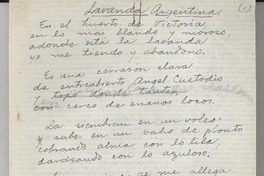 Lavanda Argentina (1)
En el huerto de Victoria,
en lo más blando y moroso,
adonde está la lavanda
yo me tiendo y abandono.
Es una cerrazón clara
de entreabierto Angel Custodio
y topo donde
con ceras de enanos locos.
La siembran en un voleo
y sube en un vaho de pronto
cobrando alma con la lila,
dardeando con lo azuloso.
que allega